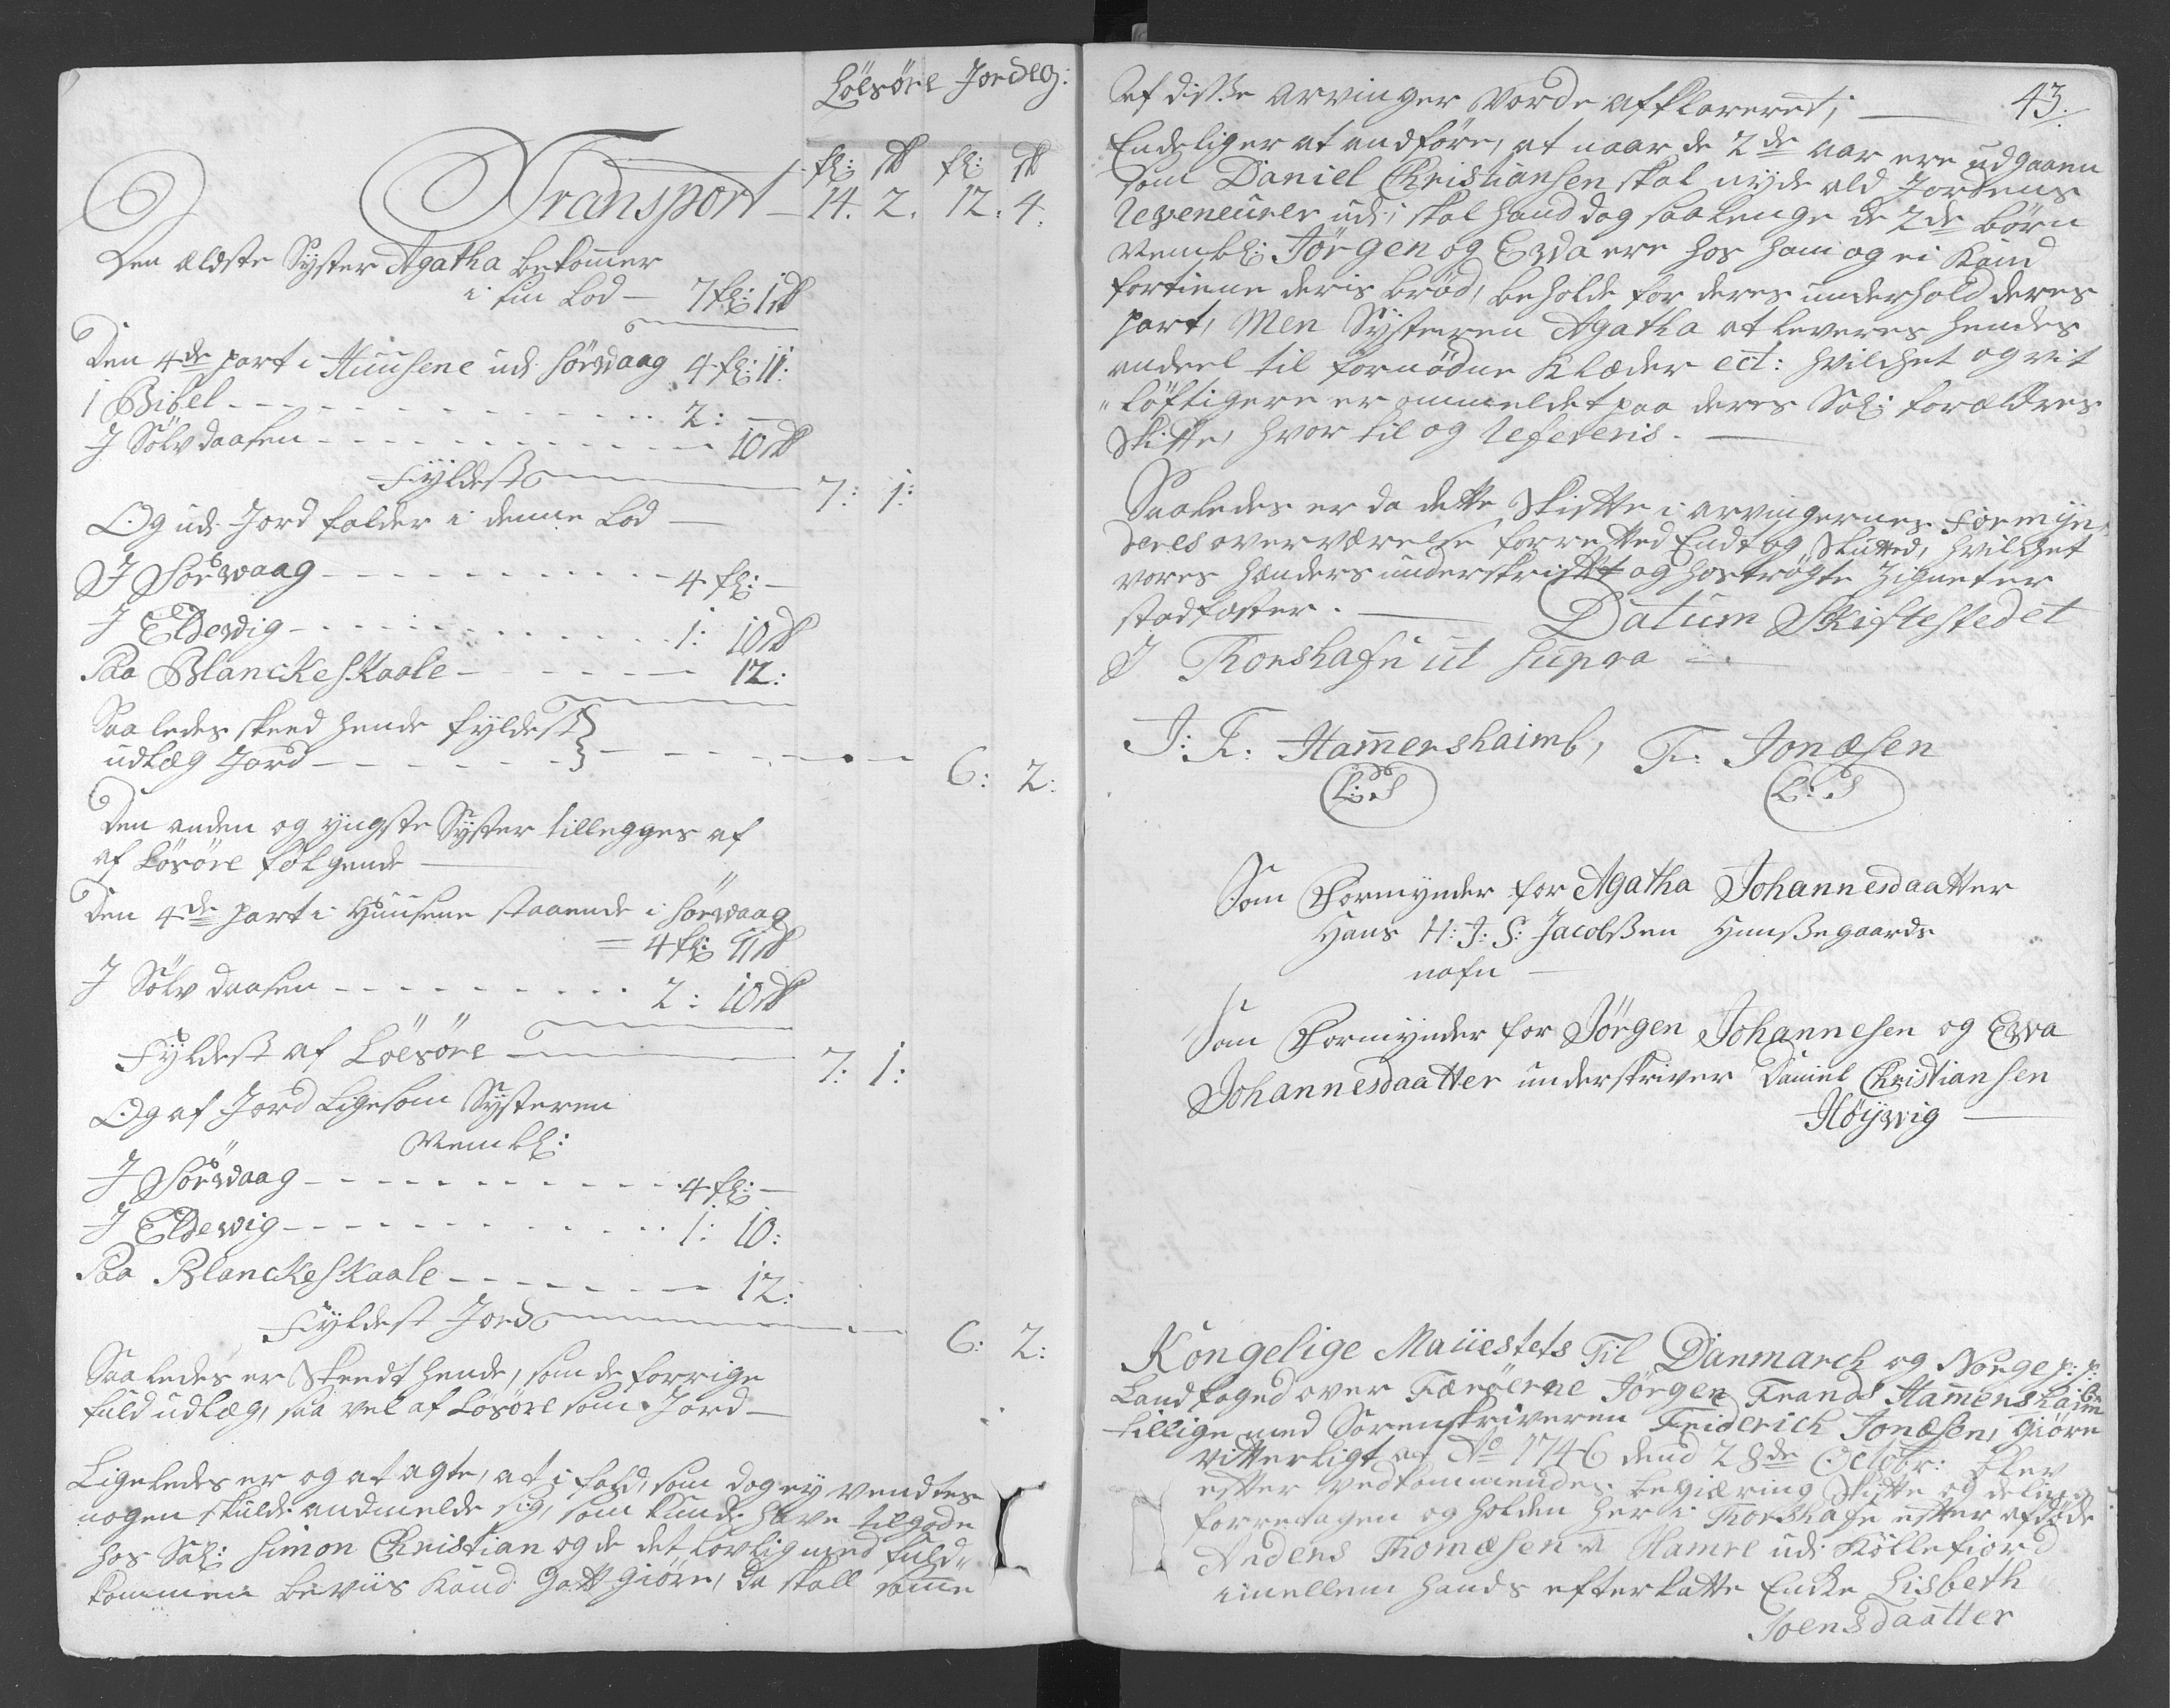 Löesöre Jordeg:
fl: sk fl: sk
Transport – 14. 2. 12. 4.
Den ældste Syster Agatha bekommer
i sin Lod – 7 fl: 1 sk
Den 4de part i Huusene udi Sörvaag 4 fl: 11:
1 Bibel - - - 2: —
J Sölv daasen - - - 10 sk
Fyldest — 7: 1:
Og udi Jord falder i denne Lod —
J Sörvaag - - - 4 fl: —
J Eldevig - - - 1: 10 sk
Paa Blanckeskaale - - - 12:
Saaledes skeed hende fyldest
udlæg Jord - - - 6: 2:
Den anden og yngste Syster tillegges af
af Lösöre fölgende —
Den 4de part i Huusene staaende i Sörvaag
= 4 fl: 11 sk
J Sölv daasen - - - 2: 10 sk
Fyldest af Löesöre — 7: 1:
Og af Jord Ligesom Systeren
Nembl:
J Sörvaag - - - 4 fl: —
J Eldevig - - - 1: 10:
Paa Blanckeskaale - - - 12:
Fyldest Jord — 6: 2:
Saaledes er Skeedt hende, som de forrige
fuld udlæg, saa vel af Lösöre som Jord —
Ligeledes er og at agte, at i fald, som dog ey ventes
nogen skulde andmelde sig, som kunde have tilgode
hos Sal: Simon Christian og de det lovlig med fuld-
kommen beviis kand gott giöre, da skall samme
43.
af disse arvinger vorde afklareret; —
Endeligen at andföre, at naar de 2de aar ere udgaaen
som Daniel Christiansen skal nyde ald Jordens
Reveneuer udi, skal hand dog saa lenge de 2de börn
Nembl: Jörgen og Evva ere hos ham og ei kand
fortiene deris bröd, beholde for deres underhold deres
part, Men Systeren Agatha at leveres hendes
andeel til fornödne Klæder ect: hvilchet og vit
"löftigere er ommeldet paa deres Sal: forældres
Skifte, hvor til og Refereris. —
Saaledes er da dette Skiftte i arvingernes Formyn-
deres overværelse forrettet Endt og Sluttet, hvilchet
vores hænders underskrifft og hoströgte Zigneter
stadfæster. — Datum Skiftestedet
J Thorshafn ut supra —
J: F: Hammershaimb, F: Jonæsen
L:S L:S
Som Formynder for Agatha Johannesdaatter
Hans H: J: S: Jacobssen Hunssegaards
nafn —
Som Formynder for Jörgen Johannesen og Evva
Johannesdaatter underskriver Daniel Christiansen
Höyvig —
Kongelige Maijestets Til Danmarck og Norge p: p:
Landfoged over Færöerne Jörgen Frands Hamershaimb
tillige med Sorenskriveren Friderich Jonæsen, giöre
Vitterligt at Ao 1746 dend 28de Octobr: blev
efter vedkommendes begiæring Skiftte og deling
forretagen og holden her i Thorshafn efter afdöde
Anders Thomæsen v Hamre udi Kollefiord
imellem hands efterlatte Encke Lisbeth
Joensdaatter